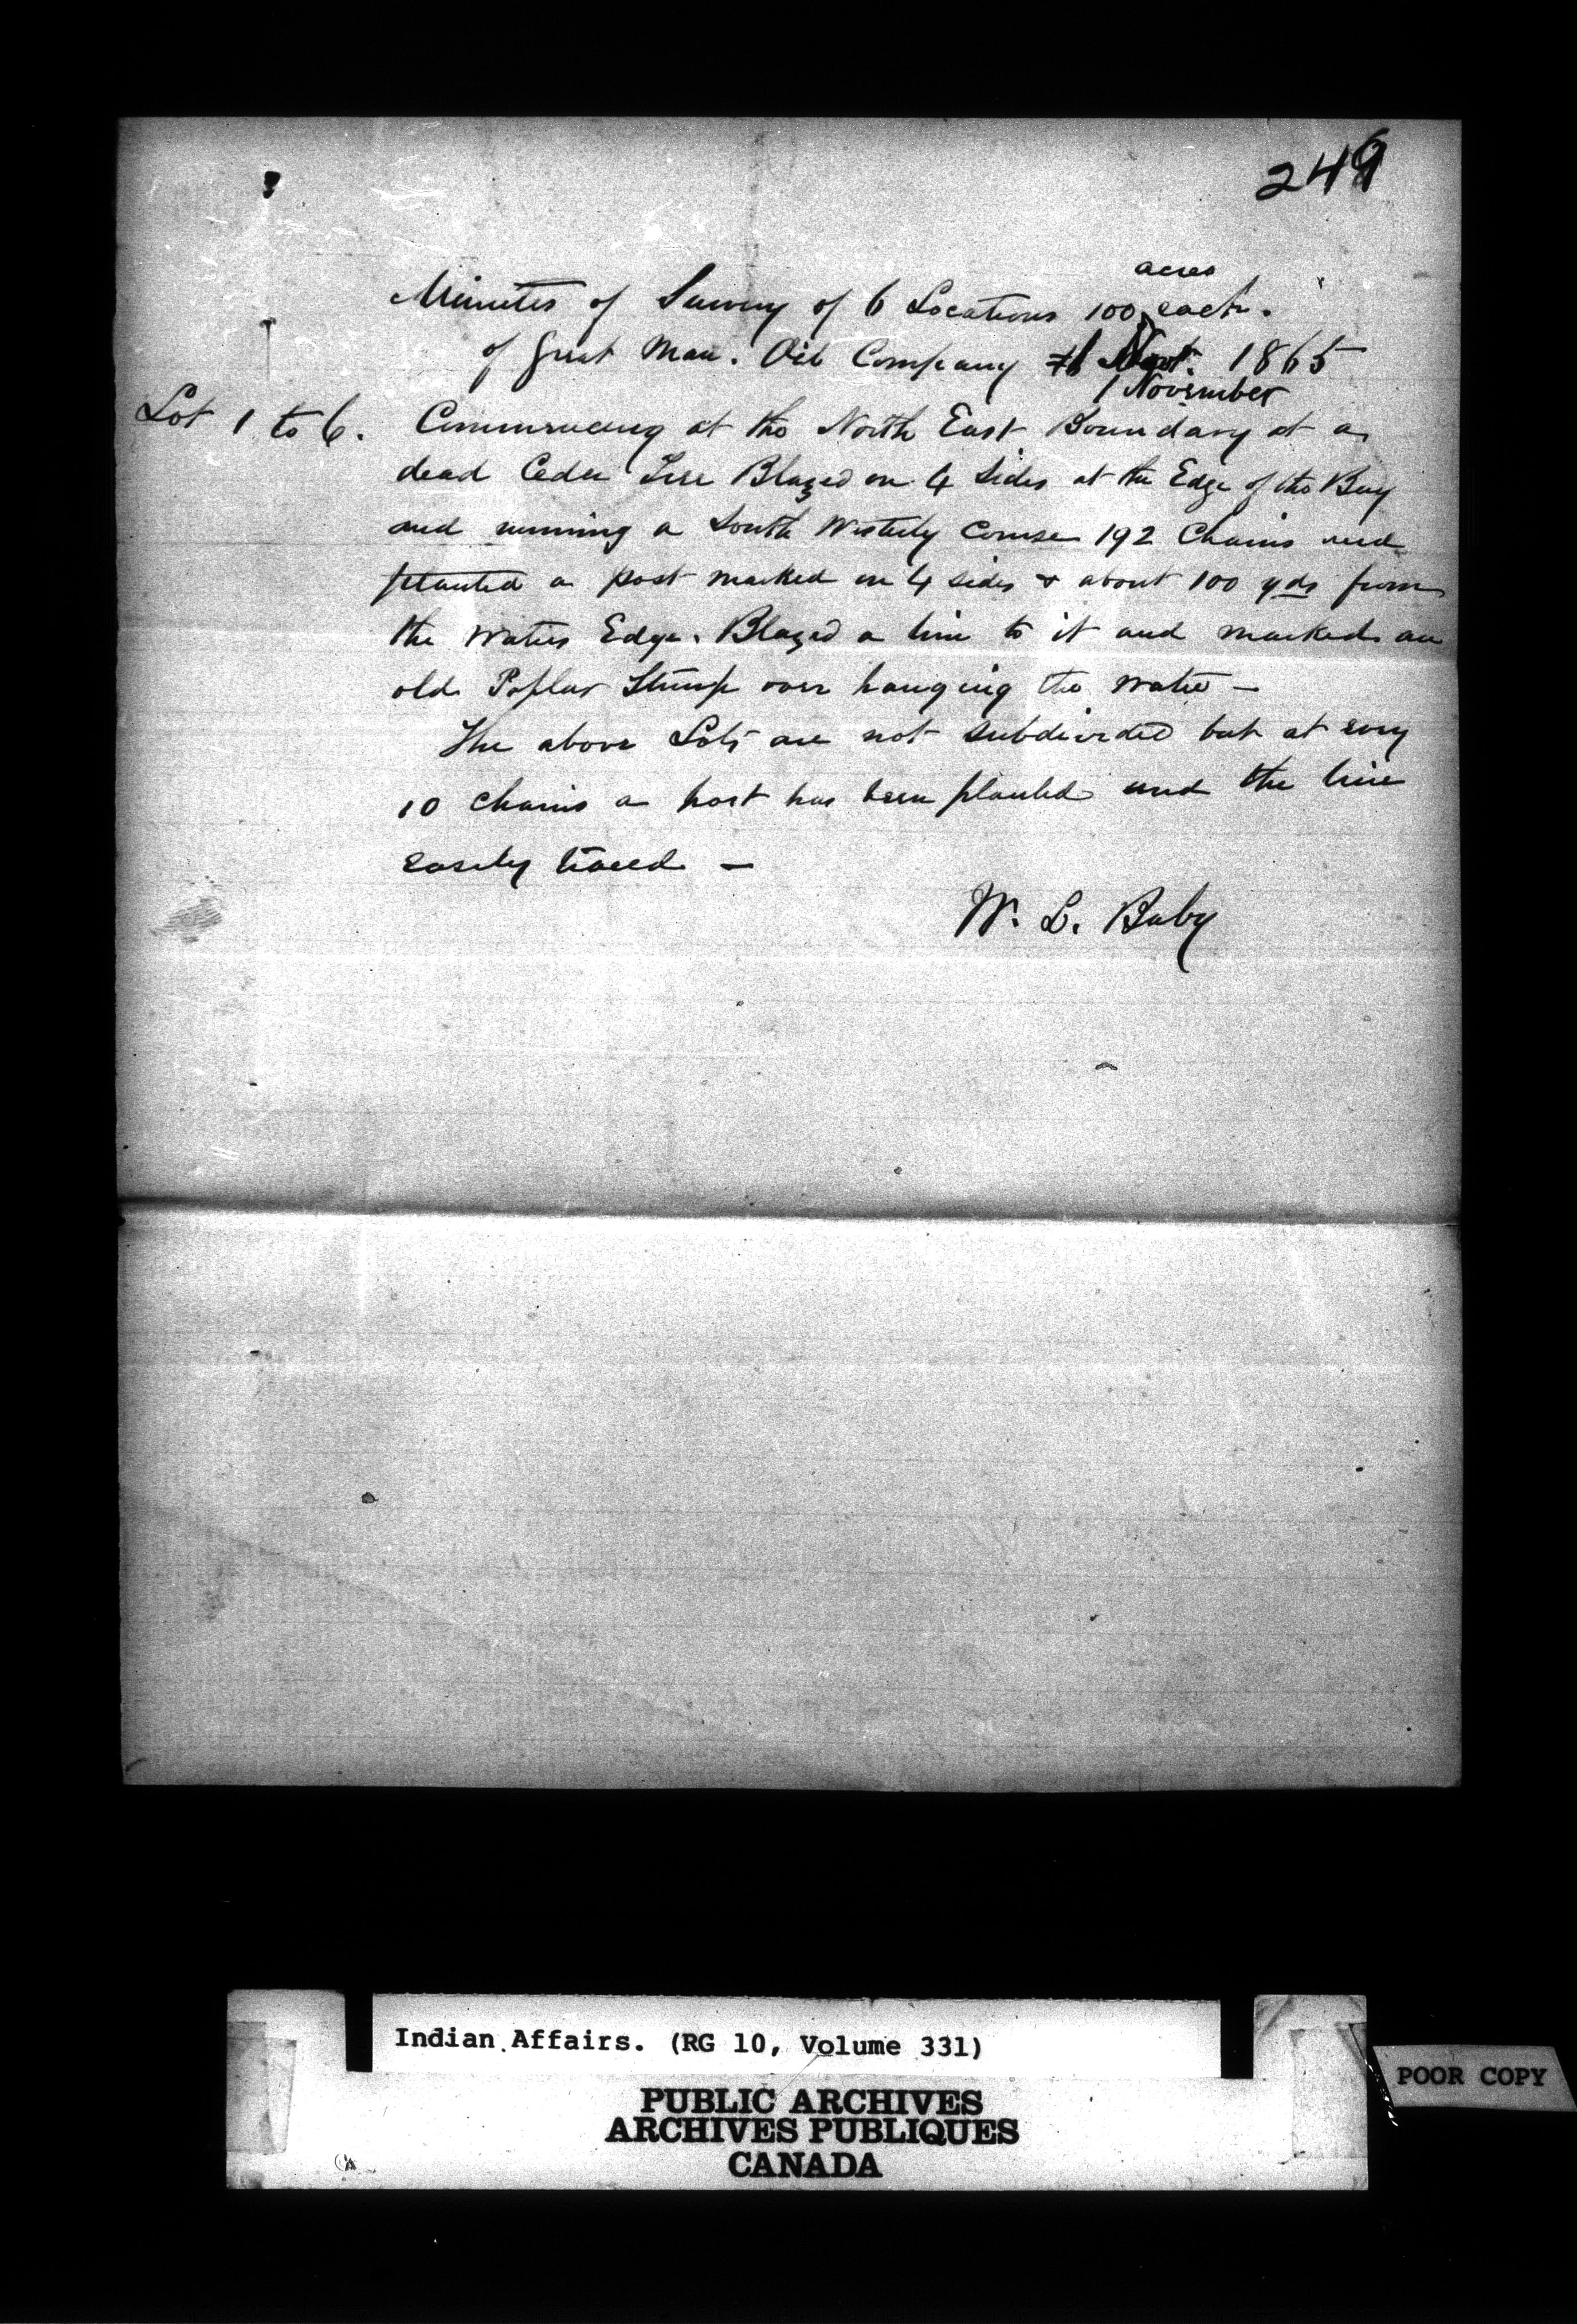 249
Minutes of Survey of 6 Locations 100 acres each.
of Great Man. Oil Company 1865
1 November
Lot 1 to 6. Commencing at the North East Boundary at a
dead Ceder Tree Blazed on 4 Sides at the Edge of the Bay
and running a South Westerly Course 192 Chains and
planted a post marked on 4 sides & about 100 yds from
the Waters Edge. Blazed a line to it and marked an
old Poplar Stump over hanging the water —
The above Lots are not subdivided but at every
10 Chains a post has been planted and the line
easily traced —
W. L. Baby
Indian Affairs. (RG 10, Volume 331)
PUBLIC ARCHIVES
ARCHIVES PUBLIQUES
CANADA
POOR COPY